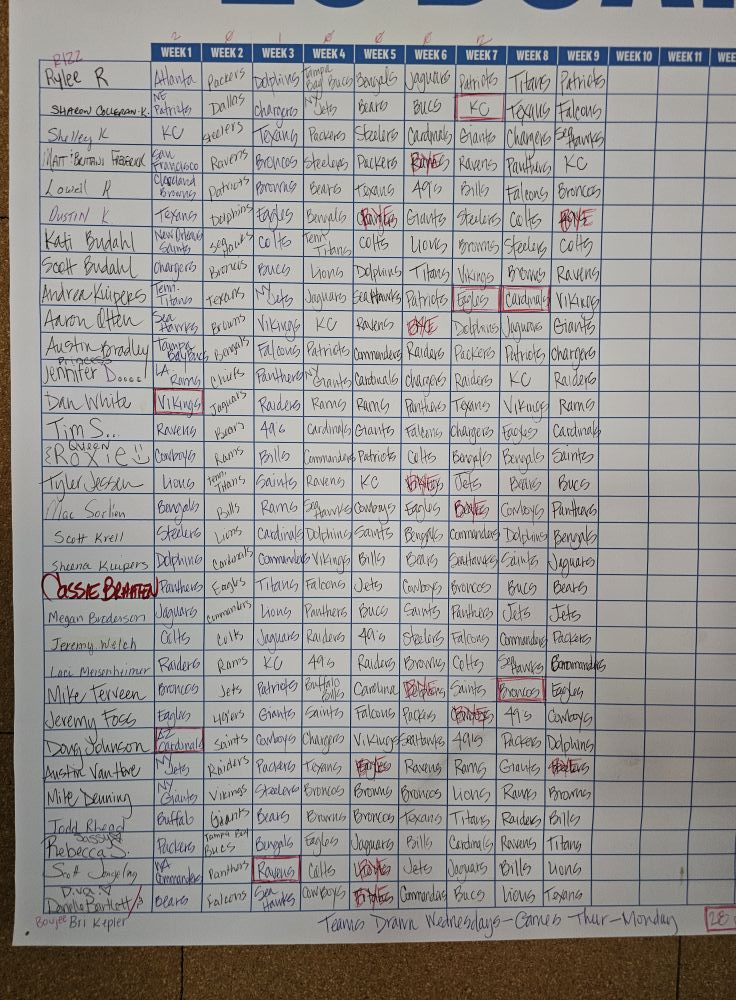 2 0 1 0 0 0 2
WEEK 1 WEEK 2 WEEK 3 WEEK 4 WEEK 5 WEEK 6 WEEK 7 WEEK 8 WEEK 9 WEEK 10 WEEK 11 WEE
RIZZ
Rylee R Atlanta Packers Dolphins Tampa Bay Bucs Bengals Jaguars Patriots Titans Patriots
SHARON COLLERAN-K. NE Patriots Dallas Chargers NY Jets Bears Bucs KC Texans Falcons
Shelley K KC Steelers Texans Packers Steelers Cardinals Giants Chargers Sea Hawks
MATT San Francisco Ravens Broncos Steelers Packers BYE Ravens Panthers KC
Lowell R Cleveland Browns Patriots Browns Bears Texans 49's Bills Falcons Broncos
DUSTIN K Texans Dolphins Eagles Bengals BYE Giants Steelers Colts BYE
Kati Budahl New Orleans Saints Sea Hawks Colts Tenn. Titans Colts Lions Browns Steelers Colts
Scott Budahl Chargers Broncos Bucs Lions Dolphins Titans Vikings Browns Ravens
Andrea Kuipers Tenn. Titans Texans NY Jets Jaguars SeaHawks Patriots Eagles Cardinals Vikings
Aaron Otten Sea Hawks Browns Vikings KC Ravens BYE Dolphins Jaguars Giants
Austin Bradley Tampa Bay Bucs Bengals Falcons Patriots Commanders Raiders Packers Patriots Chargers
Princess
Jennifer D....! LA Rams Chiefs Panthers NY Giants Cardinals Chargers Raiders KC Raiders
Dan White Vikings Jaguars Raiders Rams Rams Panthers Texans Vikings Rams
Tim S... Ravens Bears 49's Cardinals Giants Falcons Chargers Eagles Cardinals
QUEEN
Roxie Cowboys Rams Bills Commanders Patriots Colts Bengals Bengals Saints
Tyler Jessen Lions Tenn. Titans Saints Ravens KC BYE Jets Bears Bucs
Mac Sorlien Bengals Bills Rams Sea Hawks Cowboys Eagles BYE Cowboys Panthers
Scott Krell Steelers Lions Cardinals Dolphins Saints Bengals Commanders Dolphins Bengals
Sheena Kuipers Dolphins Cardinals Commanders Vikings Bills Bears SeaHawks Saints Jaguars
CASSIE BRAATEN Panthers Eagles Titans Falcons Jets Cowboys Broncos Bucs Bears
Megan Brodenson Jaguars Commanders Lions Panthers Bucs Saints Panthers Jets Jets
Jeremy Welch Colts Colts Jaguars Raiders 49's Steelers Falcons Commanders Packers
Laci Meisenheimer Raiders Rams KC 49's Raiders Browns Colts Sea Hawks Commanders
Mike Terveen Broncos Jets Patriots Buffalo Bills Carolina BYE Saints Broncos Eagles
Jeremy Foss Eagles 49ers Giants Saints Falcons Packers BYE 49's Cowboys
Doug Johnson AZ Cardinals Saints Cowboys Chargers Vikings SeaHawks 49's Packers Dolphins
Austin VanHove NY Jets Raiders Packers Texans BYE Ravens Rams Giants BYE
Mike Denning NY Giants Vikings Steelers Broncos Browns Broncos Lions Rams Browns
Todd Rhead Buffalo Giants Bears Browns Broncos Texans Titans Raiders Bills
Sassy
Rebecca S. Packers Tampa Bay Bucs Bengals Eagles Jaguars Bills Cardinals Ravens Titans
WA Commanders Panthers Ravens Colts BYE Jets Jaguars Bills Lions
Diva
Danelle Bartlett Bears Falcons Sea Hawks Cowboys BYE Commanders Bucs Lions Texans
Boujee Bri Kepler
Teams Drawn Wednesdays - Games Thur - Monday
28